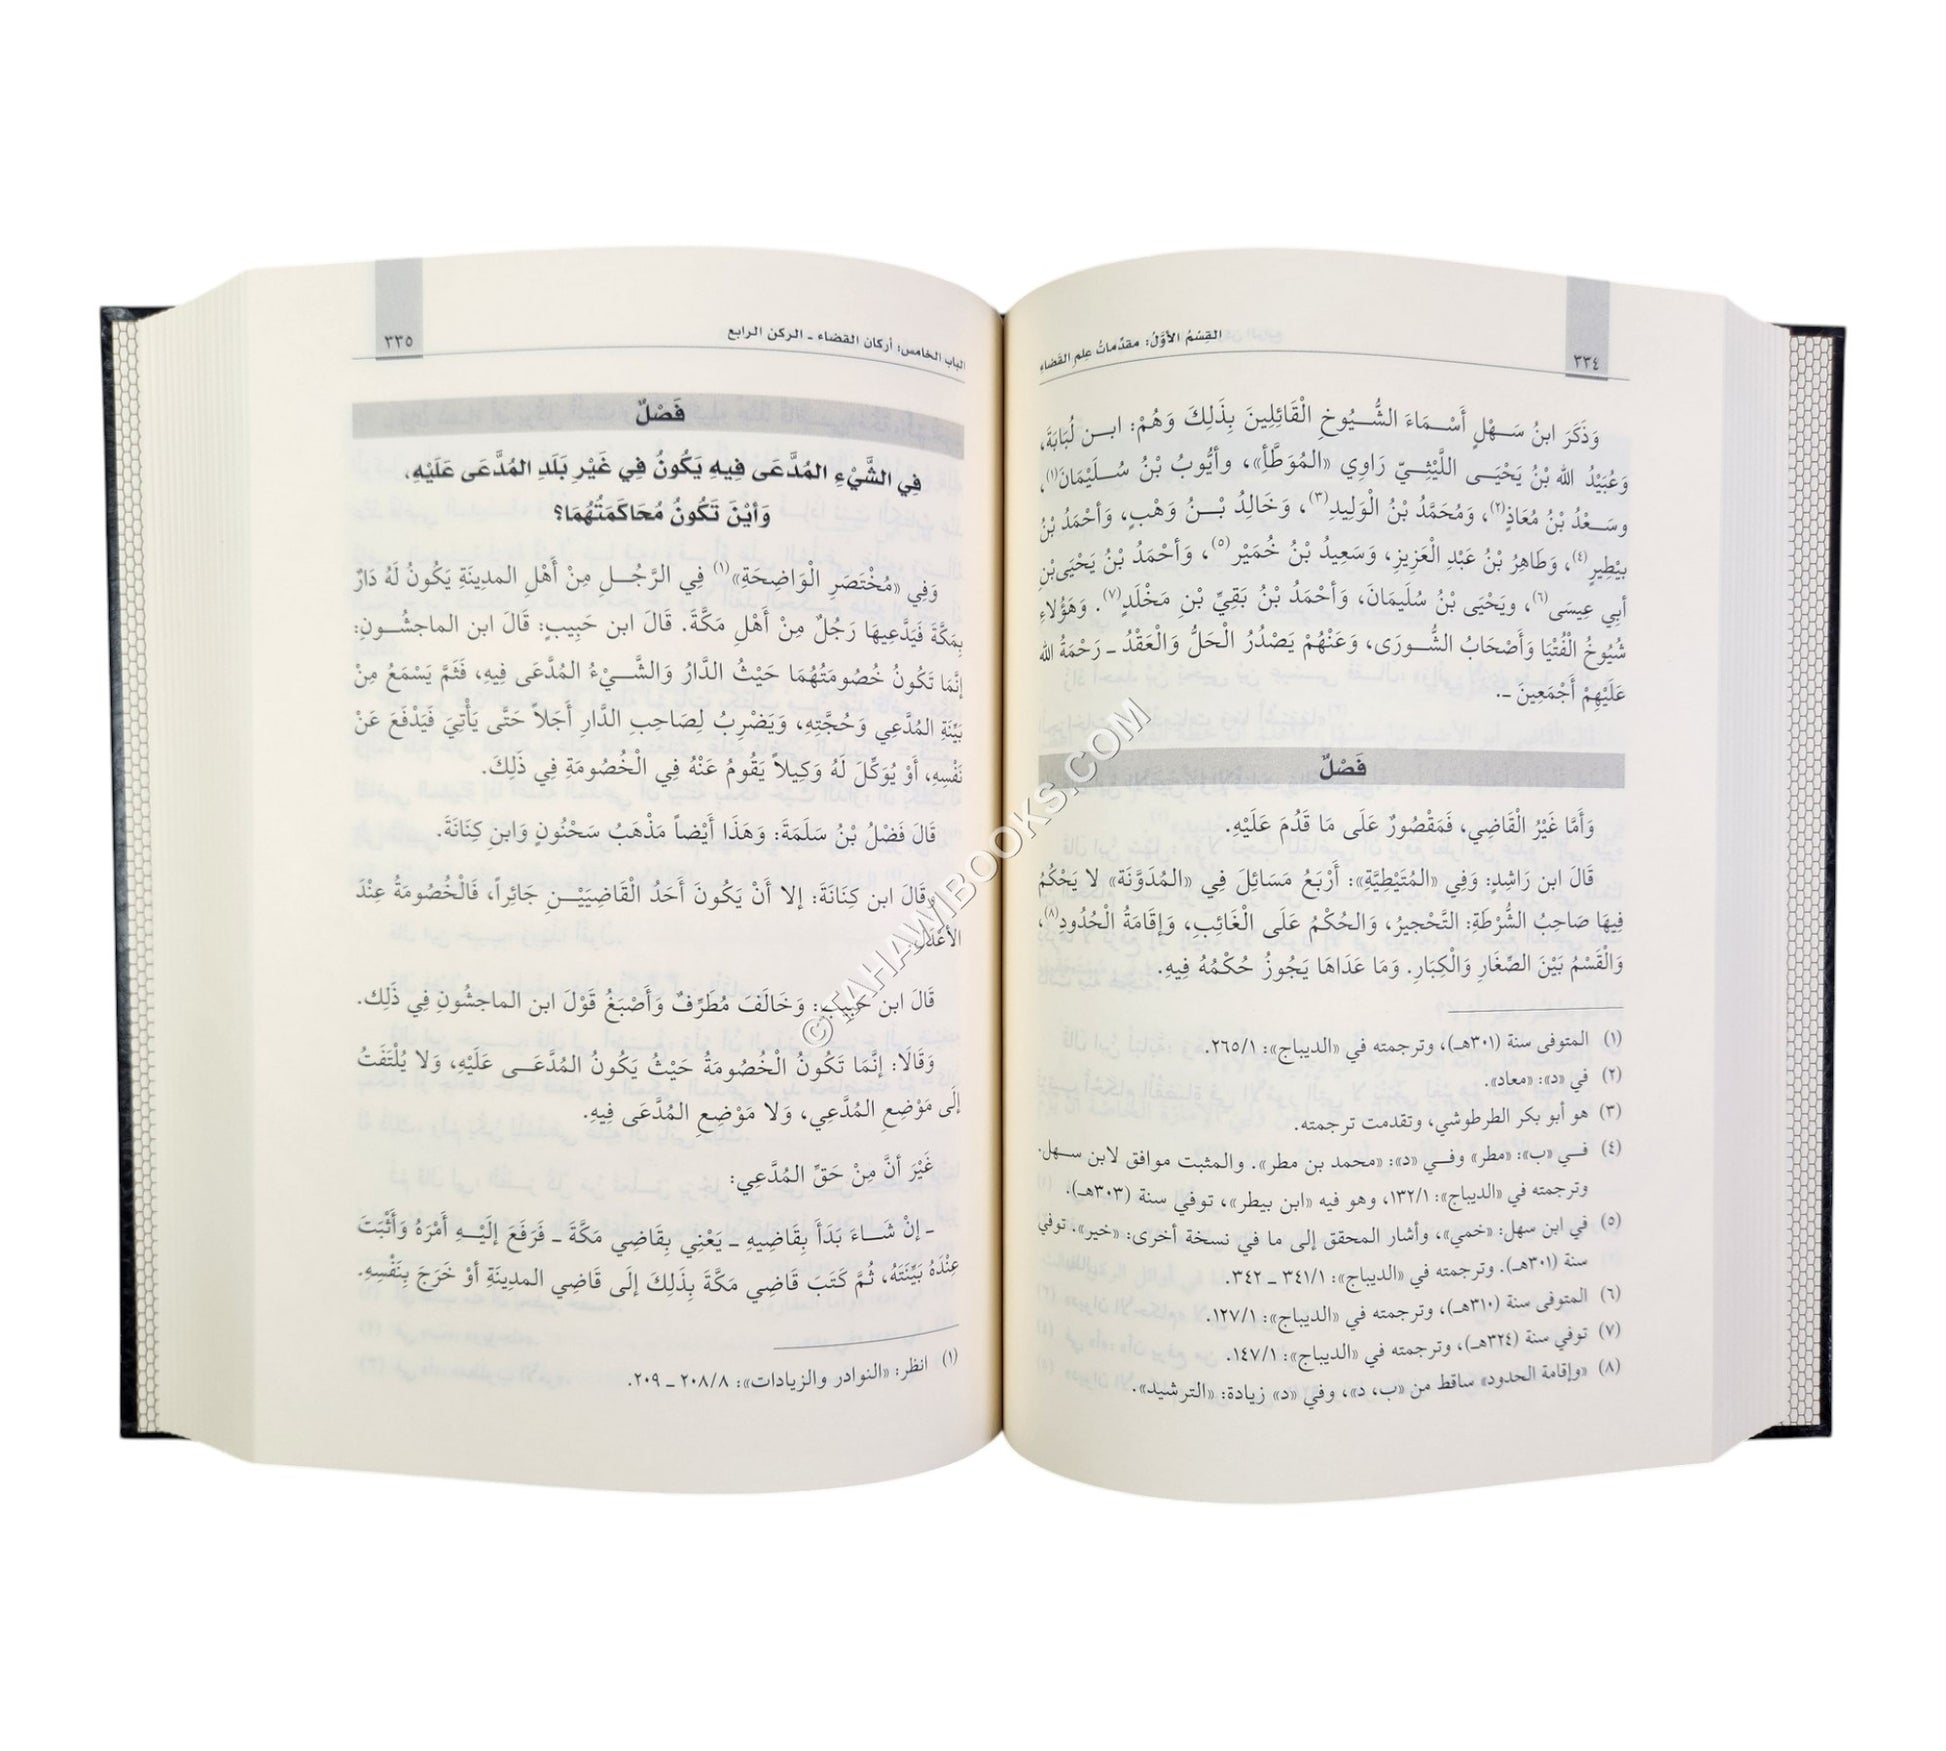 ٣٣٤
القِسْمُ الأوَّلُ: مقدِّماتُ عِلمِ القَضاءِ
وَذَكَرَ ابنُ سَهْلٍ أَسْمَاءَ الشُّيُوخِ الْقَائِلِينَ بِذَلِكَ وَهُمْ: ابن لُبَابَةَ،
وَعُبَيْدُ الله بْنُ يَحْيَى اللَّيْثِيّ رَاوِي «المُوَطَّأِ»، وأيُّوبُ بْنُ سُلَيْمَانَ(١)،
وسَعْدُ بْنُ مُعَاذٍ(٢)، وَمُحَمَّدُ بْنُ الْوَلِيدِ(٣)، وَخَالِدُ بْنُ وَهْبٍ، وَأحْمَدُ بْنُ
بيْطِيرٍ(٤)، وَطَاهِرُ بْنُ عَبْدِ الْعَزِيزِ، وَسَعِيدُ بْنُ خُمَيْر(٥)، وَأحْمَدُ بْنُ يَحْيَى بْنِ
أبي عِيسَى(٦)، ويَحْيَى بْنُ سُلَيمَانَ، وَأحْمَدُ بْنُ بَقِيِّ بْنِ مَخْلَدٍ(٧). وَهَؤُلَاءِ
شُيُوخُ الْفُتْيَا وَأَصْحَابُ الشُّورَى، وَعَنْهُمْ يَصْدُرُ الْحَلُّ وَالْعَقْدُ ـ رَحْمَةُ الله
عَلَيْهِمْ أَجْمَعِينَ ـ.
فَصْلٌ
وَأَمَّا غَيْرُ الْقَاضِي، فَمَقْصُورٌ عَلَى مَا قَدُمَ عَلَيْهِ.
قَالَ ابن رَاشِدٍ: وَفِي «المُتَيْطِيَّةِ»: أَرْبَعُ مَسَائِلَ فِي «المُدَوَّنَة» لا يَحْكُمُ
فِيهَا صَاحِبُ الشُّرْطَةِ: التَّحْجِيرُ، وَالحُكْمُ عَلَى الْغَائِبِ، وَإقَامَةُ الْحُدُودِ(٨)،
وَالْقَسْمُ بَيْنَ الصِّغَارِ وَالْكِبَارِ. وَمَا عَدَاهَا يَجُوزُ حُكْمُهُ فِيهِ.
(١) المتوفى سنة (٣٠١هـ)، وترجمته في «الديباج»: ٢٦٥/١.
(٢) في «د»: «معاد».
(٣) هو أبو بكر الطرطوشي، وتقدمت ترجمته.
(٤) في «ب»: «مطر» وفي «د»: «محمد بن مطر». والمثبت موافق لابن سهل.
وترجمته في «الديباج»: ١٣٢/١، وهو فيه «ابن بيطر»، توفي سنة (٣٠٣هـ).
(٥) في ابن سهل: «خمي»، وأشار المحقق إلى ما في نسخة أخرى: «خير»، توفي
سنة (٣٠١هـ). وترجمته في «الديباج»: ٣٤١/١ ـ ٣٤٢.
(٦) المتوفى سنة (٣١٠هـ)، وترجمته في «الديباج»: ١٢٧/١.
(٧) توفي سنة (٣٢٤هـ)، وترجمته في «الديباج»: ١٤٧/١.
(٨) «وإقامة الحدود» ساقط من «ب، د»، وفي «د» زيادة: «الترشيد».
الباب الخامس: أركان القضاء ـ الركن الرابع
٣٣٥
فَصْلٌ
فِي الشَّيْءِ المُدَّعَى فِيهِ يَكُونُ فِي غَيْرِ بَلَدِ المُدَّعَى عَلَيْهِ،
وَأيْنَ تَكُونُ مُحَاكَمَتُهُمَا؟
وَفِي «مُخْتَصَرِ الْوَاضِحَةِ»(١) فِي الرَّجُلِ مِنْ أَهْلِ المدِينَةِ يَكُونُ لَهُ دَارٌ
بِمَكَّةَ فَيَدَّعِيهَا رَجُلٌ مِنْ أَهْلِ مَكَّةَ. قَالَ ابن حَبِيبٍ: قَالَ ابن الماجشُونِ:
إنَّمَا تَكُونُ خُصُومَتُهُمَا حَيْثُ الدَّارُ وَالشَّيْءُ المُدَّعَى فِيهِ، فَثَمَّ يَسْمَعُ مِنْ
بَيِّنَةِ المُدَّعِي وَحُجَّتِهِ، وَيَضْرِبُ لِصَاحِبِ الدَّارِ أَجَلاً حَتَّى يَأْتِيَ فَيَدْفَعَ عَنْ
نَفْسِهِ، أَوْ يُوَكِّلَ لَهُ وَكِيلاً يَقُومُ عَنْهُ فِي الْخُصُومَةِ فِي ذَلِكَ.
قَالَ فَضْلُ بْنُ سَلَمَةَ: وَهَذَا أَيْضاً مَذْهَبُ سَحْنُونٍ وَابنِ كِنَانَةَ.
وقَالَ ابن كِنَانَةَ: إلا أَنْ يَكُونَ أَحَدُ الْقَاضِيَيْنِ جَائِراً، فَالْخُصُومَةُ عِنْدَ
الأعْدَلِ.
قَالَ ابن حَبِيبٍ: وَخَالَفَ مُطَرِّفٌ وَأَصْبَغُ قَوْلَ ابن الماجشُونِ فِي ذَلِك.
وَقَالَا: إنَّمَا تَكُونُ الْخُصُومَةُ حَيْثُ يَكُونُ المُدَّعَى عَلَيْهِ، وَلا يُلْتَفَتُ
إلَى مَوْضِعِ المُدَّعِي، وَلا مَوْضِعِ المُدَّعَى فِيهِ.
غَيْرَ أنَّ مِنْ حَقِّ المُدَّعِي:
ـ إنْ شَاءَ بَدَأَ بِقَاضِيهِ ـ يَعْنِي بِقَاضِي مَكَّةَ ـ فَرَفَعَ إلَيْهِ أَمْرَهُ وَأَثْبَتَ
عِنْدَهُ بَيِّنَتَهُ، ثُمَّ كَتَبَ قَاضِي مَكَّةَ بِذَلِكَ إلَى قَاضِي المدِينَةِ أوْ خَرَجَ بِنَفْسِهِ.
(١) انظر: «النوادر والزيادات»: ٢٠٨/٨ ـ ٢٠٩.
©TAHAWIBOOKS.COM